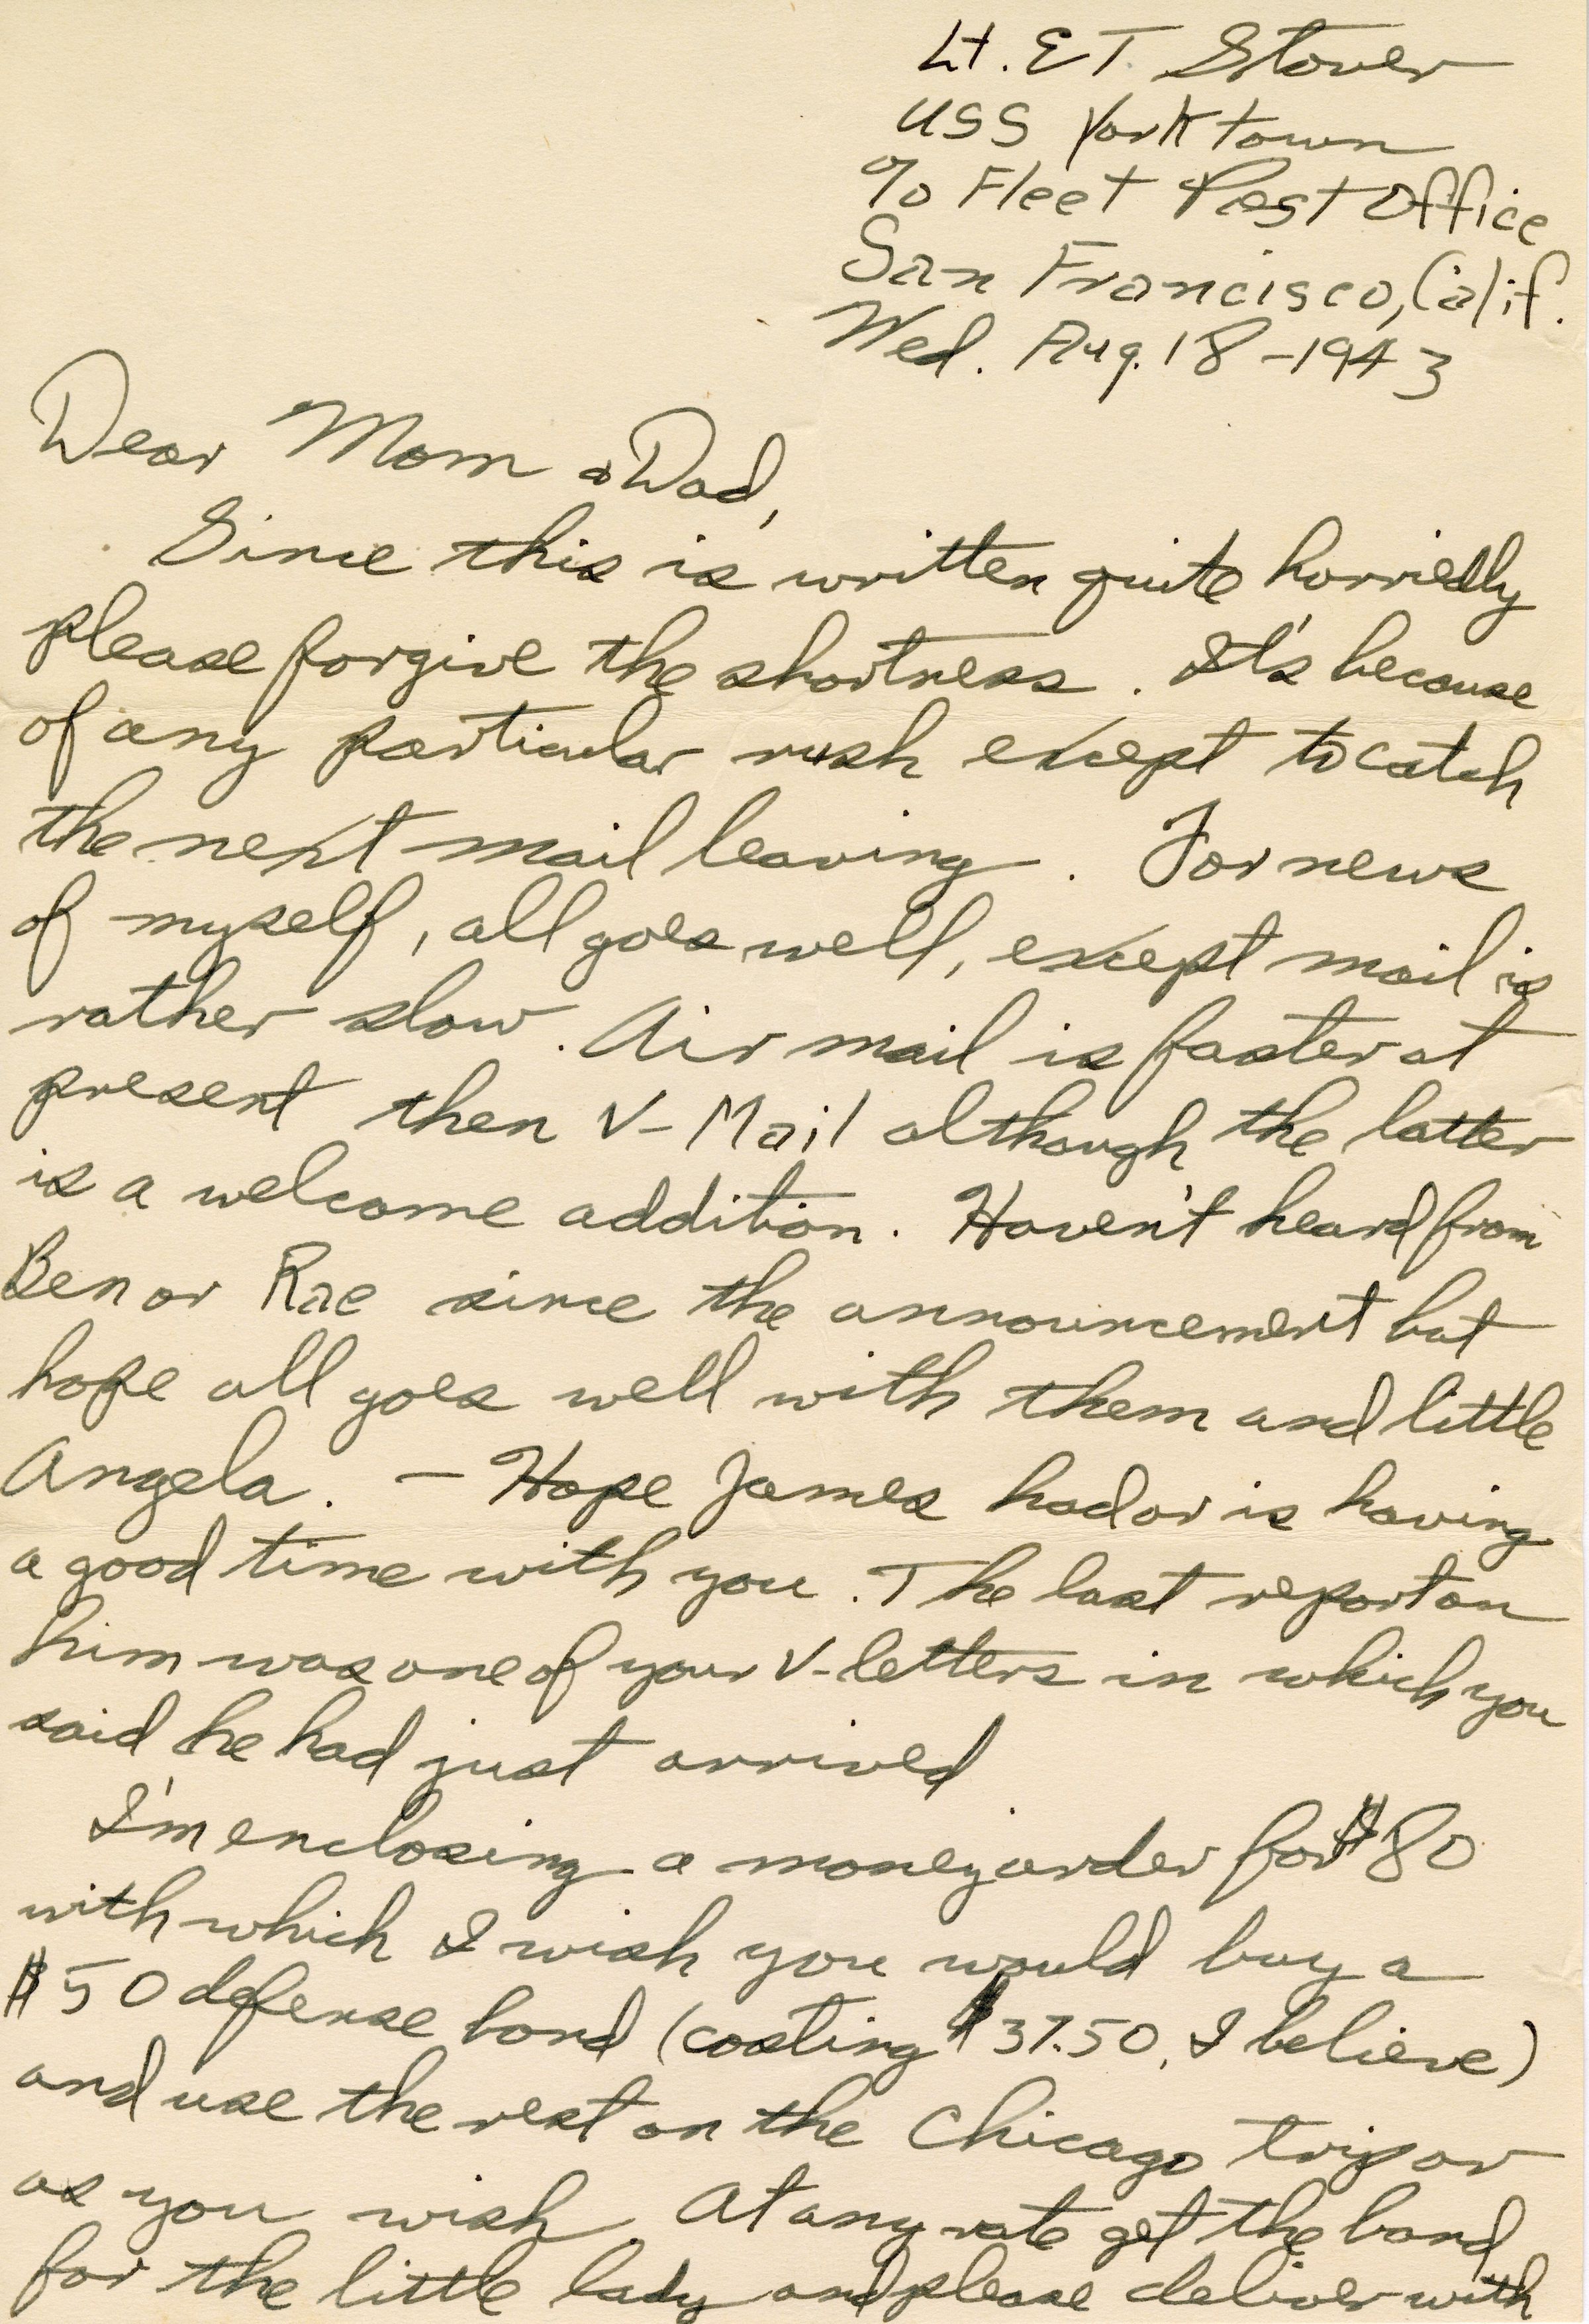 Lt. E T. Stover
USS Yorktown
c/o Fleet Post Office
San Francisco, Calif.
Wed. Aug. 18 - 1943
Dear Mom & Dad,
Since this is written quite horriedly
please forgive the shortness. It's because
of any particular rush except to catch
the next mail leaving. For news
of myself, all goes well, except mail is
rather slow. Air mail is faster at
present then V-Mail although the latter
is a welcome addition. Haven't heard from
Ben or Rae since the announcement but
hope all goes well with them and little
Angela. - Hope James had or is having
a good time with you. The last report on
him was one of your V-letters in which you
said he had just arrived
I'm enclosing a money order for $80
with which I wish you would buy a
$50 defense bond (costing $37.50, I believe)
and use the rest on the Chicago trip or
as you wish. At any rate get the bond
for the little lady and please deliver with